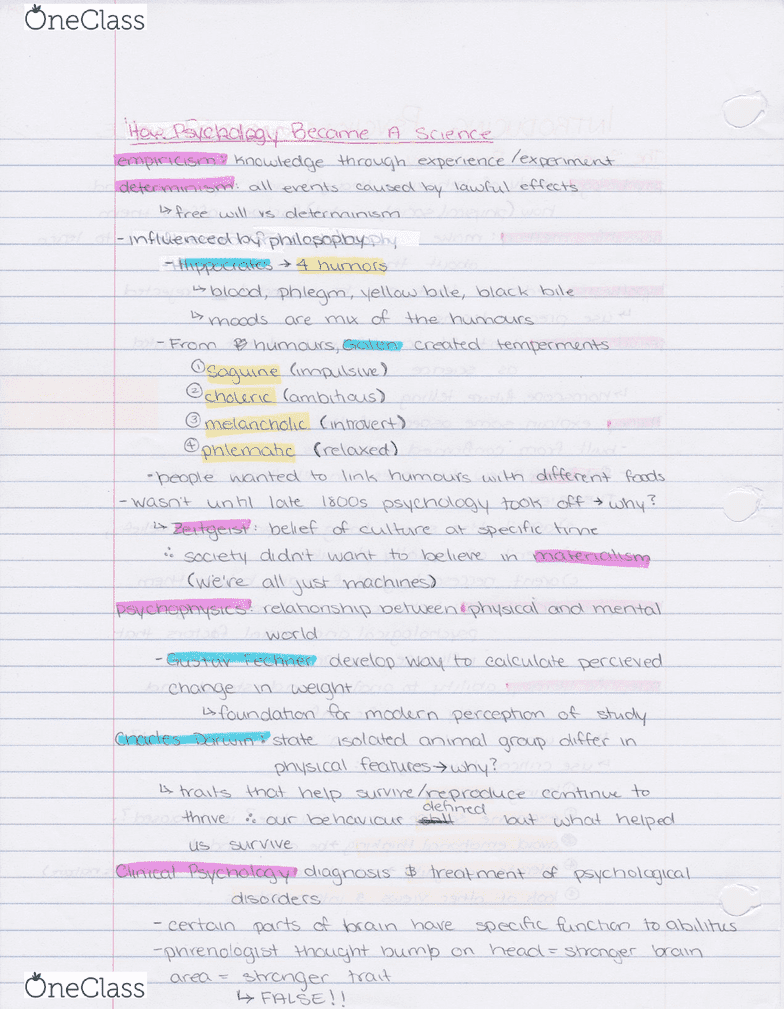 OneClass
How Psychology Became A Science
empiricism: knowledge through experience/experiment
determinism: all events caused by lawful effects
↳ free will vs determinism
- influenced by philosophy
- Hippocrates → 4 humors
↳ blood, phlegm, yellow bile, black bile
↳ moods are mix of the humours
- From humours, Galen created temperments
① Saguine (impulsive)
② choleric (ambitious)
③ melancholic (introvert)
④ phlematic (relaxed)
- people wanted to link humours with different foods
- wasn't until late 1800s psychology took off → why?
↳ Zeitgeist: belief of culture at specific time
∴ society didn't want to believe in materialism
(we're all just machines)
psychophysics: relationship between physical and mental
world
- Gustav Fechner develop way to calculate percieved
change in weight
↳ foundation for modern perception of study
Charles Darwin: state isolated animal group differ in
physical features → why?
↳ traits that help survive/reproduce continue to
defined
thrive ∴ our behaviour but what helped
us survive
Clinical Psychology diagnosis & treatment of psychological
disorders
- certain parts of brain have specific function to abilities
- phrenologist thought bump on head = stronger brain
area = stronger trait
↳ FALSE!!
OneClass